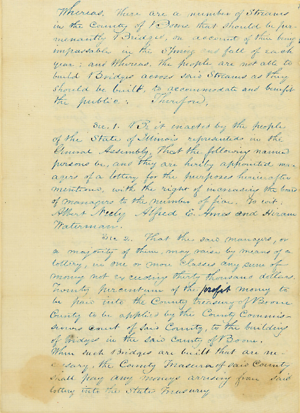 Whereas, there are a number of Streams
in the County of Boone that should be per-
manently Bridged, on account of their being
impassible in the Spring and fall of each
year: and Whereas, the people are not able to
build Bridges across said Streams as they
should be built, to accommodate and benefit
the public: Therefore,
Sec. 1. Be it enacted by the people
of the State of Illinois represented in the
General Assembly, That the following named
persons be, and they are hereby appointed man-
agers of a lottery for the purposes hereinafter
mentioned, with the right of increasing the
of managers to the number of five. To wit.
Albert Neely, Alfred E. Ames and Hiram
Waterman.
Sec 2. That the said managers, or
a majority of them, may raise by means of a
lottery, in one or more classes any sum of
money not exceeding thirty thousand dollars
Twenty per centum of the profit money to
be paid into the County Treasury of Boone
County to be applied by the County Commis-
sioners court of said County, to the building
of Bridges in the said County of Boone.
When such Bridges are built that are ne-
cessary, the County Treasurer of said County
shall pay any moneys arrising from said
lottery into the State Treasury